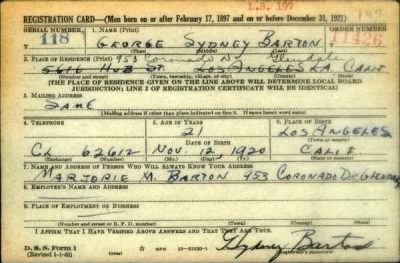 1.B. 197
REGISTRATION CARD—(Men born on or after February 17, 1897 and on or before December 31, 1921)
SERIAL NUMBER 1. NAME (Print) ORDER NUMBER
118 GEORGE SYDNEY BARTON 11426
(First) (Middle) (Last)
2. PLACE OF RESIDENCE (Print) 953 Coronado Dr Glendale
5616 HUB ST. LOS ANGELES L.A. CALIF
(Number and street) (Town, township, village, or city) (County) (State)
[THE PLACE OF RESIDENCE GIVEN ON THE LINE ABOVE WILL DETERMINE LOCAL BOARD
JURISDICTION; LINE 2 OF REGISTRATION CERTIFICATE WILL BE IDENTICAL]
3. MAILING ADDRESS
SAME
[Mailing address if other than place indicated on line 2. If same insert word same]
4. TELEPHONE 5. AGE IN YEARS 6. PLACE OF BIRTH
21 LOS ANGELES
DATE OF BIRTH (Town or county)
CL 62612 NOV. 12, 1920 CALIF.
(Exchange) (Number) (Mo.) (Day) (Yr.) (State or country)
7. NAME AND ADDRESS OF PERSON WHO WILL ALWAYS KNOW YOUR ADDRESS
MARJORIE M. BARTON 953 CORONADO DR. GLENDALE
8. EMPLOYER'S NAME AND ADDRESS
9. PLACE OF EMPLOYMENT OR BUSINESS
(Number and street or R. F. D. number) (Town) (County) (State)
I AFFIRM THAT I HAVE VERIFIED ABOVE ANSWERS AND THAT THEY ARE TRUE.
D. S. S. Form 1 Sydney Barton
(Revised 1-1-42) (over) (Registrant's signature)